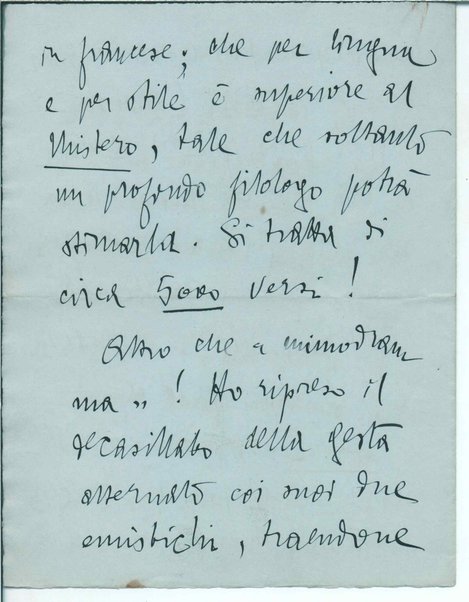 in francese; che per lingua
e per stile è superiore al
Mistero, tale che soltanto
un profondo filologo potrà
stimarla. Si tratta di
circa 5000 versi!
Altro che "mimodram
ma"! Ho ripreso il
decasillabo della gesta
alternato coi suoi due
emistichi, traendone